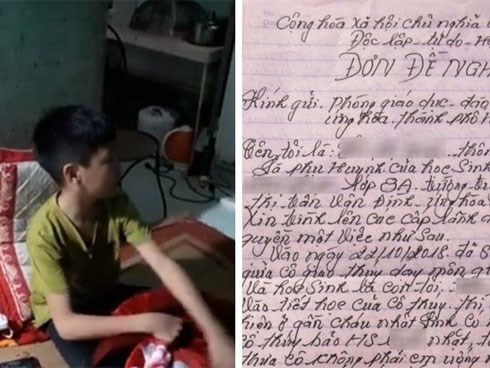 Cộng hòa xã hội chủ nghĩa
Độc lập - tự do - H
ĐƠN ĐỀ NGH
Kính gửi: Phòng giáo dục - đào
ứng hòa. thành phố H
Tên tôi là: thôn
Là phụ Huynh của học Sinh
lớp 8A. trường
thị trấn vân Đình ứng hòa
Xin trình lên các cấp Lãnh đ
quyền một việc như Sau.
Vào ngày 22/10/2018 đã S
giữa cô giáo thúy dạy môn
và học Sinh là con tôi.
vào tiết học của cô thúy. thì
ở gần cháu nhất
cô thúy bảo HS nhất,
thưa cô không phải em